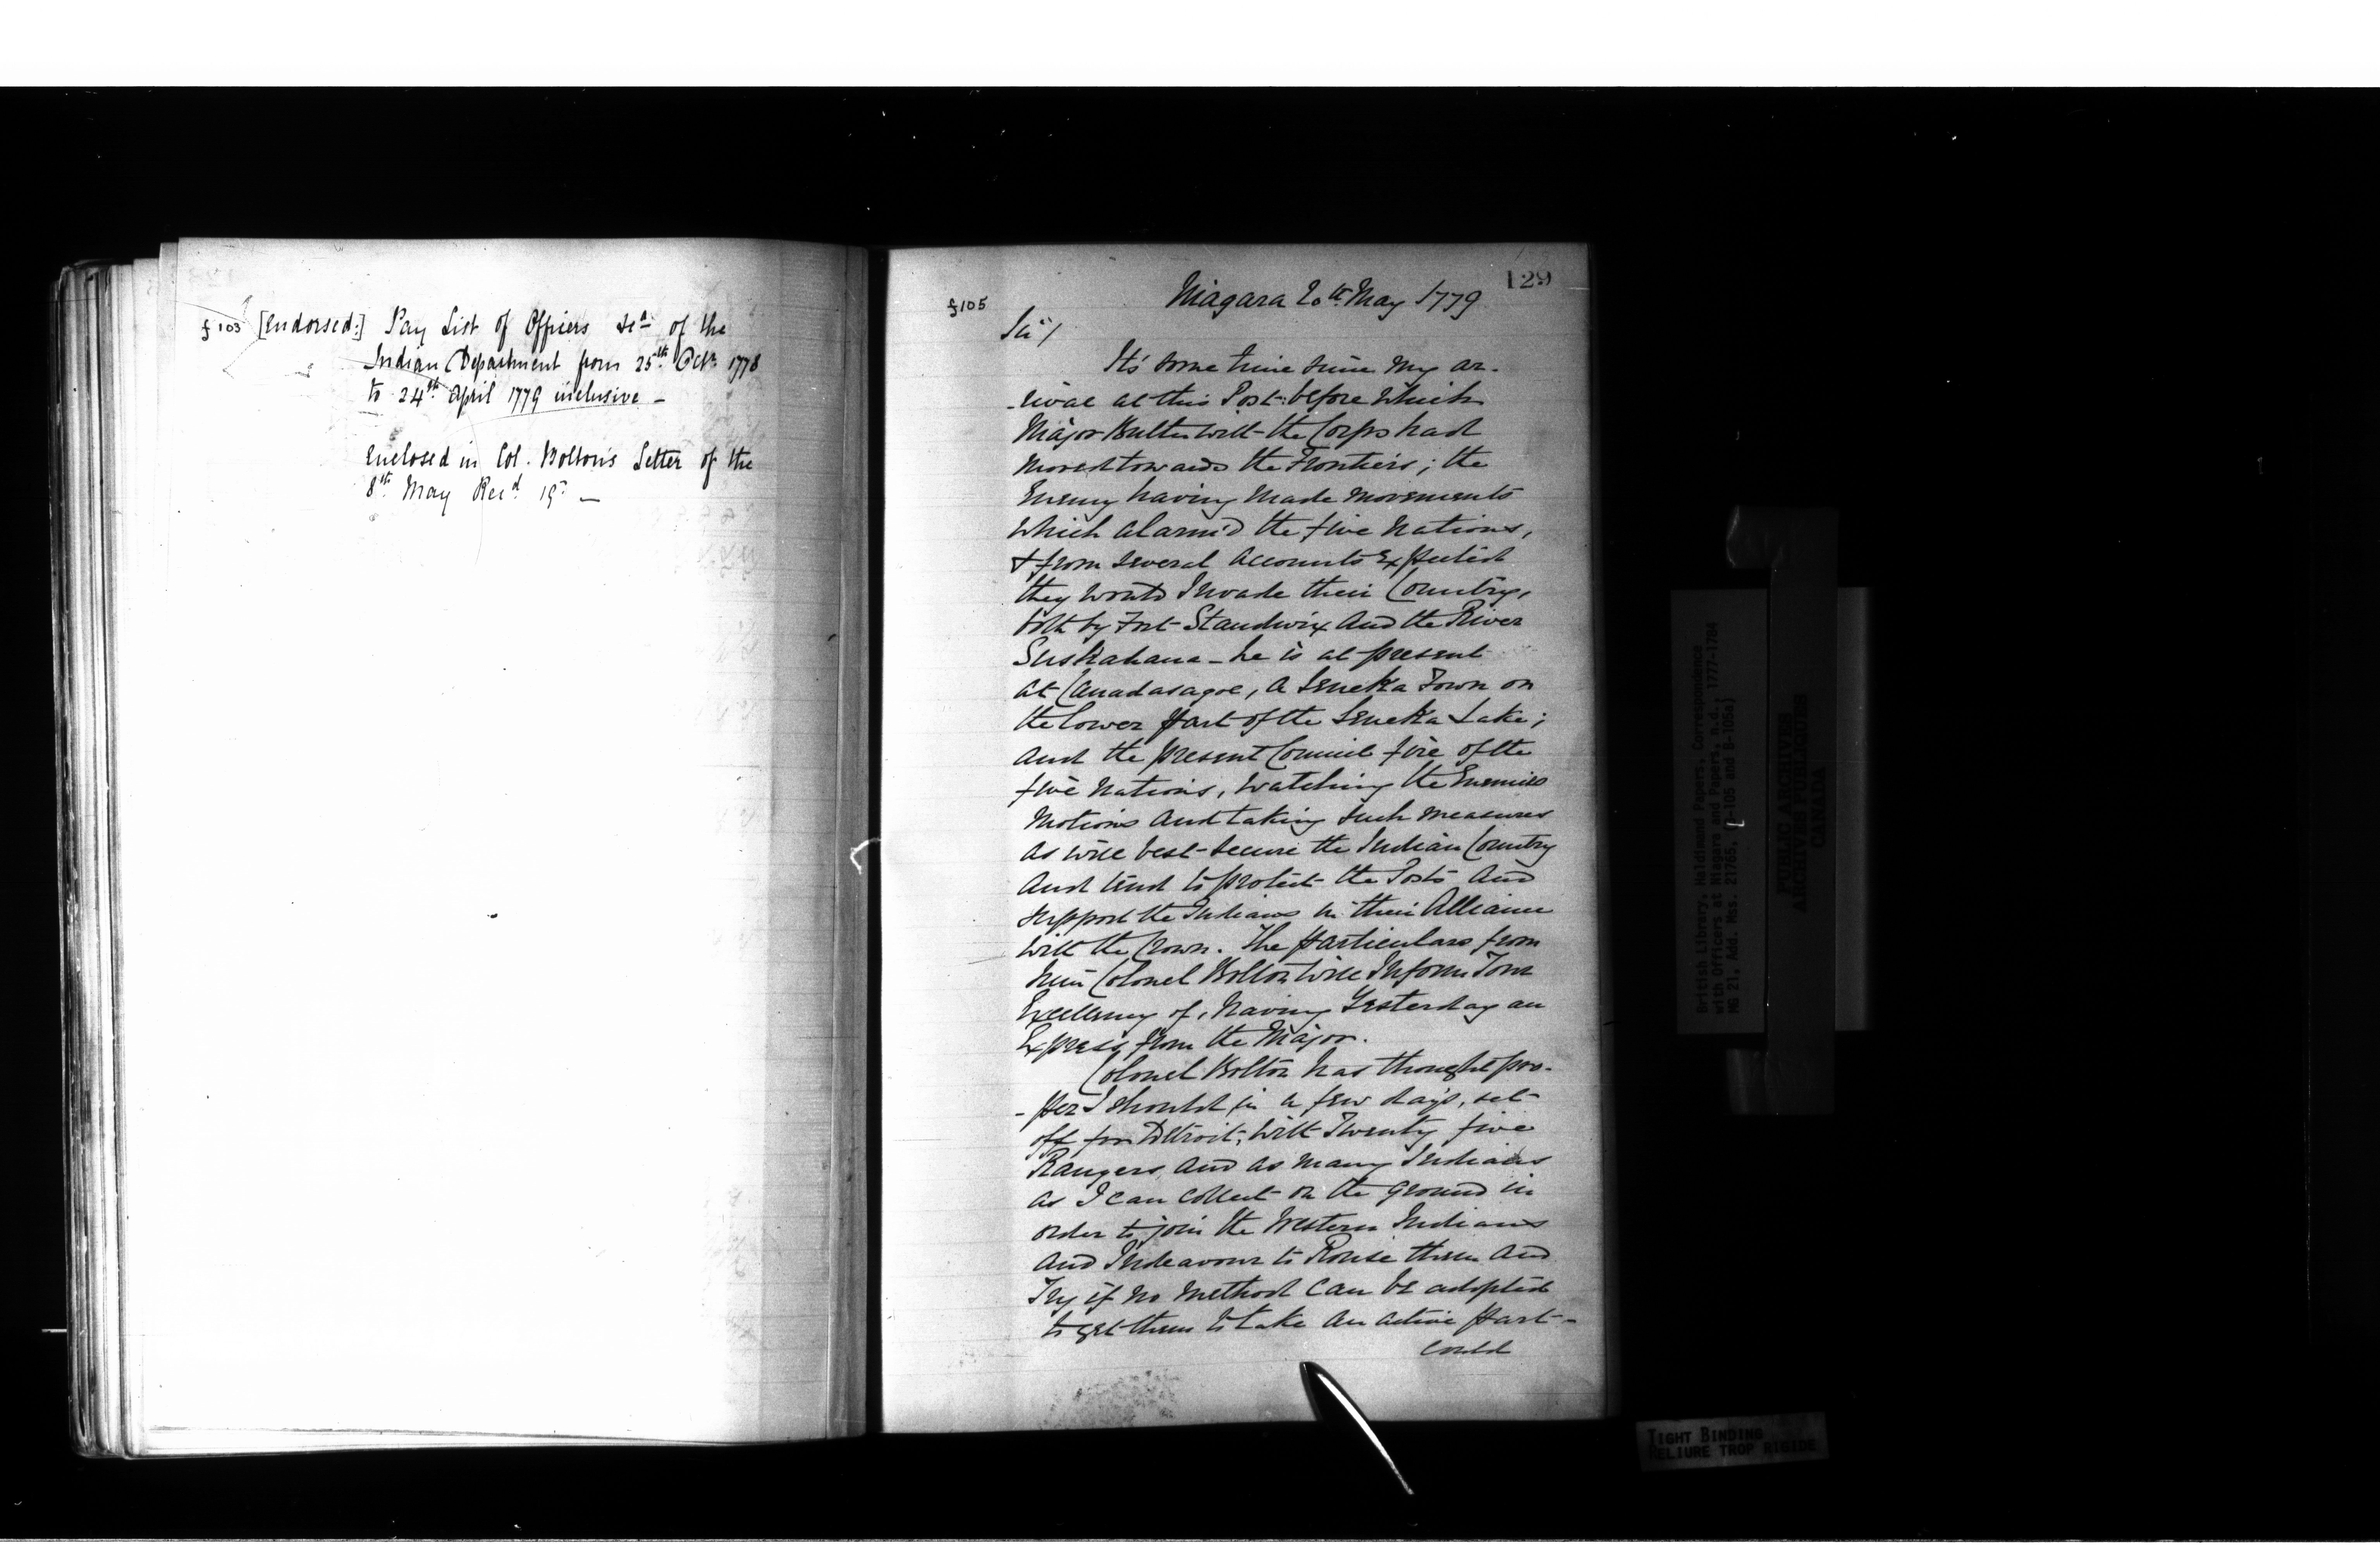 f 103 [Endorsed:] Pay List of Officers &ca of the
Indian Department from 25th Octr 1778
to 24th April 1779 inclusive –
Enclosed in Col. Bolton's Letter of the
8th May Recd 19th –
129
f105
Niagara 20th May 1779
Sir/
It's some time since my ar-
-rival at this Post: before which
Major Butler with the Corps had
moved towards the Frontiers; the
Enemy having made movements
which alarm'd the five Nations,
& from several accounts Expected
they would Invade their Country,
both by Fort Standwix and the River
Suskahana – he is at present
at Canadasagoe, a Seneka Town on
the lower part of the Seneka Lake;
and the present Council fire of the
five Nations, watching the Enemies
motions and taking such measures
as will best secure the Indian Country
and tend to protect the Posts and
support the Indians in their Alliance
with the Crown. The particulars from
him Colonel Bolton will Inform Your
Excellency of, having Yesterday an
Express from the Major.
Colonel Bolton has thought pro-
-per I should in a few days, set
off for Detroit, with Twenty five
Rangers and as many Indians
as I can collect on the ground in
order to join the Western Indians
and Indeavour to Rouse them and
Try if no method can be adopted
to get them to take an active part –
could
British Library, Haldimand Papers, Correspondence
with Officers at Niagara and Papers, n.d., 1777-1784
MG 21, Add. Mss. 21765, (B-105 and B-105a)
PUBLIC ARCHIVES
ARCHIVES PUBLIQUES
CANADA
TIGHT BINDING
RELIURE TROP RIGIDE